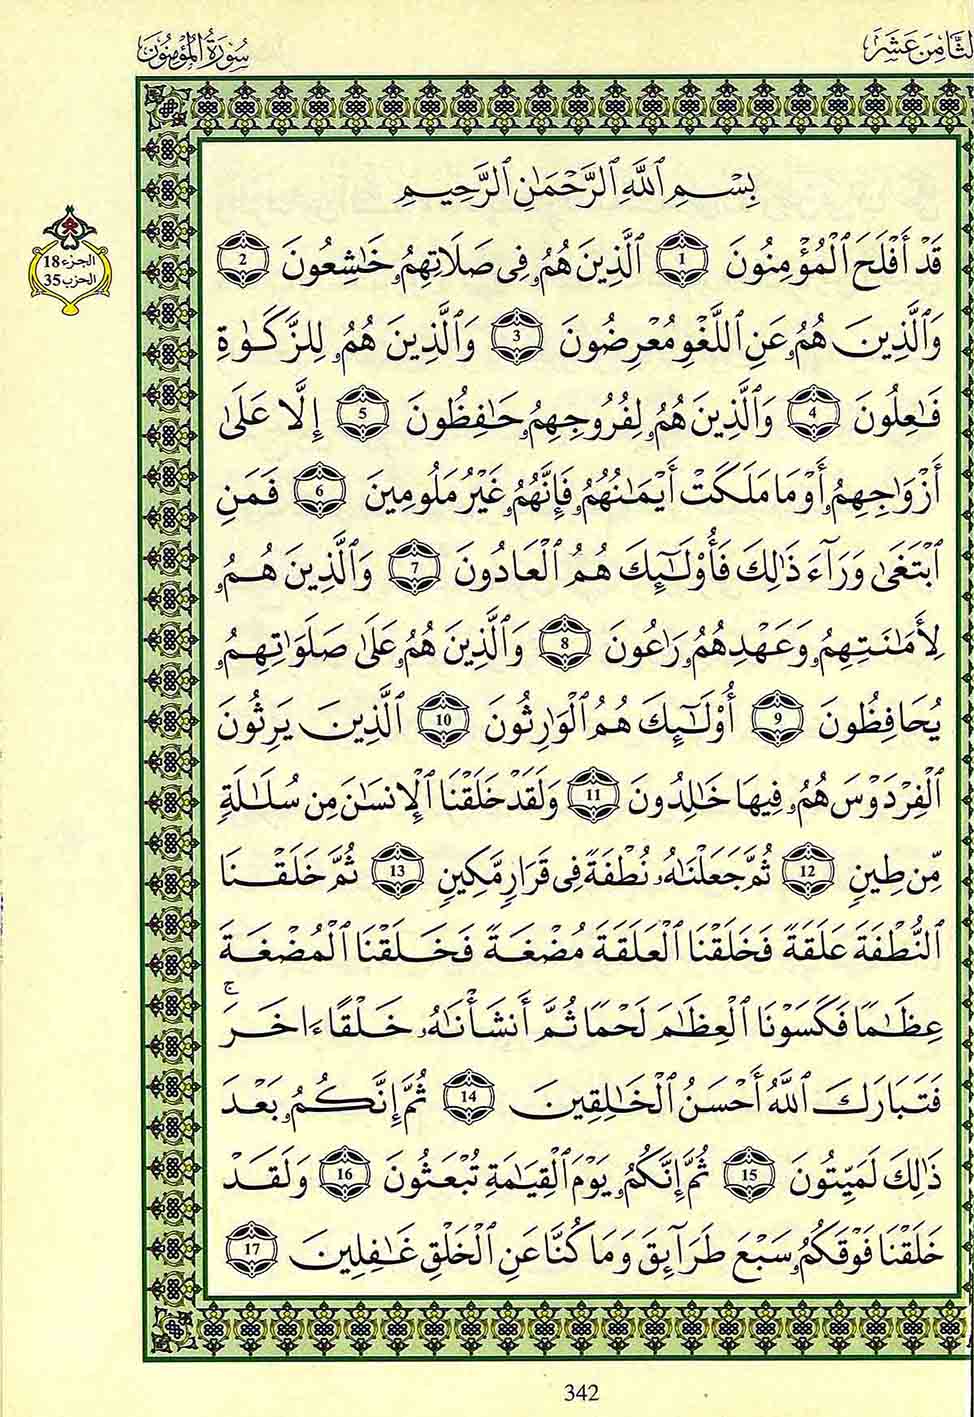 الثَّامِنَ عَشَرَ
سُورَةُ الْمُؤْمِنُونَ
بِسْمِ ٱللَّهِ ٱلرَّحْمَـٰنِ ٱلرَّحِيمِ
قَدْ أَفْلَحَ ٱلْمُؤْمِنُونَ 1 ٱلَّذِينَ هُمُۥ فِى صَلَاتِهِمُۥ خَـٰشِعُونَ 2
وَٱلَّذِينَ هُمُۥ عَنِ ٱللَّغْوِ مُعْرِضُونَ 3 وَٱلَّذِينَ هُمُۥ لِلزَّكَوٰةِ
فَـٰعِلُونَ 4 وَٱلَّذِينَ هُمُۥ لِفُرُوجِهِمُۥ حَـٰفِظُونَ 5 إِلَّا عَلَىٰ
أَزْوَاجِهِمُۥ أَوْ مَا مَلَكَتْ أَيْمَـٰنُهُمُۥ فَإِنَّهُمُۥ غَيْرُ مَلُومِينَ 6 فَمَنِ
ٱبْتَغَىٰ وَرَآءَ ذَٰلِكَ فَأُو۟لَـٰٓئِكَ هُمُ ٱلْعَادُونَ 7 وَٱلَّذِينَ هُمُۥ
لِأَمَـٰنَـتِهِمُۥ وَعَهْدِهِمُۥ رَٰعُونَ 8 وَٱلَّذِينَ هُمُۥ عَلَىٰ صَلَوَٰتِهِمُۥ
يُحَافِظُونَ 9 أُو۟لَـٰٓئِكَ هُمُ ٱلْوَٰرِثُونَ 10 ٱلَّذِينَ يَرِثُونَ
ٱلْفِرْدَوْسَ هُمُۥ فِيهَا خَـٰلِدُونَ 11 وَلَقَدْ خَلَقْنَا ٱلْإِنسَـٰنَ مِن سُلَـٰلَةٍ
مِّن طِينٍ 12 ثُمَّ جَعَلْنَـٰهُۥ نُطْفَةً فِى قَرَارٍ مَّكِينٍ 13 ثُمَّ خَلَقْنَا
ٱلنُّطْفَةَ عَلَقَةً فَخَلَقْنَا ٱلْعَلَقَةَ مُضْغَةً فَخَلَقْنَا ٱلْمُضْغَةَ
عِظَـٰمًا فَكَسَوْنَا ٱلْعِظَـٰمَ لَحْمًا ثُمَّ أَنشَأْنَـٰهُۥ خَلْقًا ءَاخَرَ ۚ
فَتَبَارَكَ ٱللَّهُ أَحْسَنُ ٱلْخَـٰلِقِينَ 14 ثُمَّ إِنَّكُمُۥ بَعْدَ
ذَٰلِكَ لَمَيِّتُونَ 15 ثُمَّ إِنَّكُمُۥ يَوْمَ ٱلْقِيَـٰمَةِ تُبْعَثُونَ 16 وَلَقَدْ
خَلَقْنَا فَوْقَكُمُۥ سَبْعَ طَرَآئِقَ وَمَا كُنَّا عَنِ ٱلْخَلْقِ غَـٰفِلِينَ 17
الجزء 18
الحزب 35
342